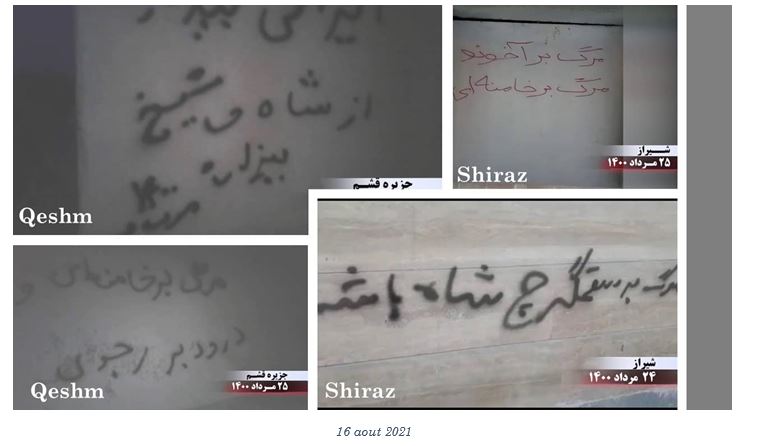 از شاه و شیخ
بیزاره
۱۴۰۰
جزیره قشم
Qeshm
مرگ بر آخوند
مرگ بر خامنه ای
شیراز
۲۵ مرداد ۱۴۰۰
Shiraz
مرگ بر خامنه ای
درود بر رجوی
جزیره قشم
۲۵ مرداد ۱۴۰۰
Qeshm
مرگ بر ستمگر چ شاه
شیراز
۲۴ مرداد ۱۴۰۰
Shiraz
16 aout 2021